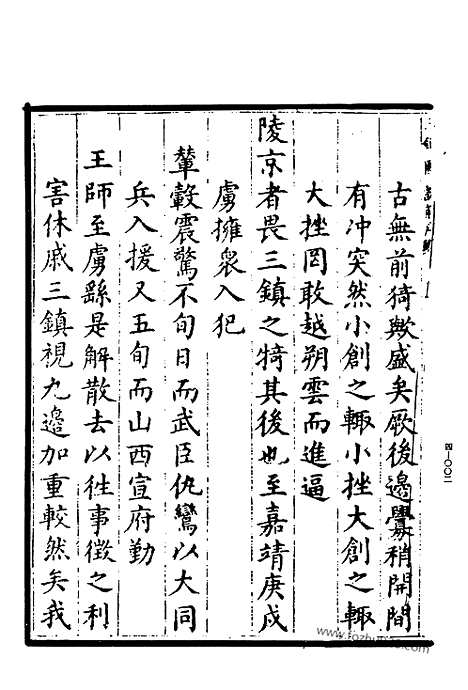 古無前猗歟盛矣厥後邊釁稍開間
有冲突然小創之輒小挫大創之輒
大挫罔敢越朔雲而進逼
陵京者畏三鎮之犄其後也至嘉靖庚戌
虜擁衆入犯
輦轂震驚不旬日而武臣仇鸞以大同
兵入援又五旬而山西宣府勤
王師至虜繇是解散去以徃事徵之利
害休戚三鎮視九邊加重較然矣我
四-〇〇二